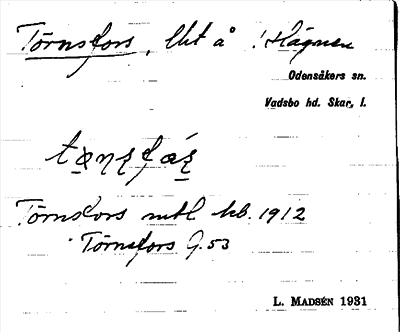 Törnsfors, lht å Hägnen
Odensåkers sn.
Vadsbo hd. Skar. l.
Törnsfors mtl kb. 1912
Törnsfors G. 53
L. MADSÉN 1931